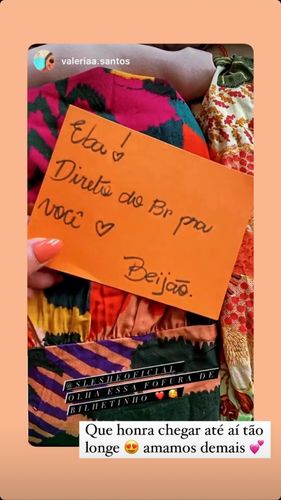 valeriaa.santos
Eba! ♡
Direto do Br pra
você ♡
Beijão.
@SLESHEOFICIAL
OLHA ESSA FOFURA DE
BILHETINHO ❤️🥰
Que honra chegar até aí tão
longe 😍 amamos demais 💕